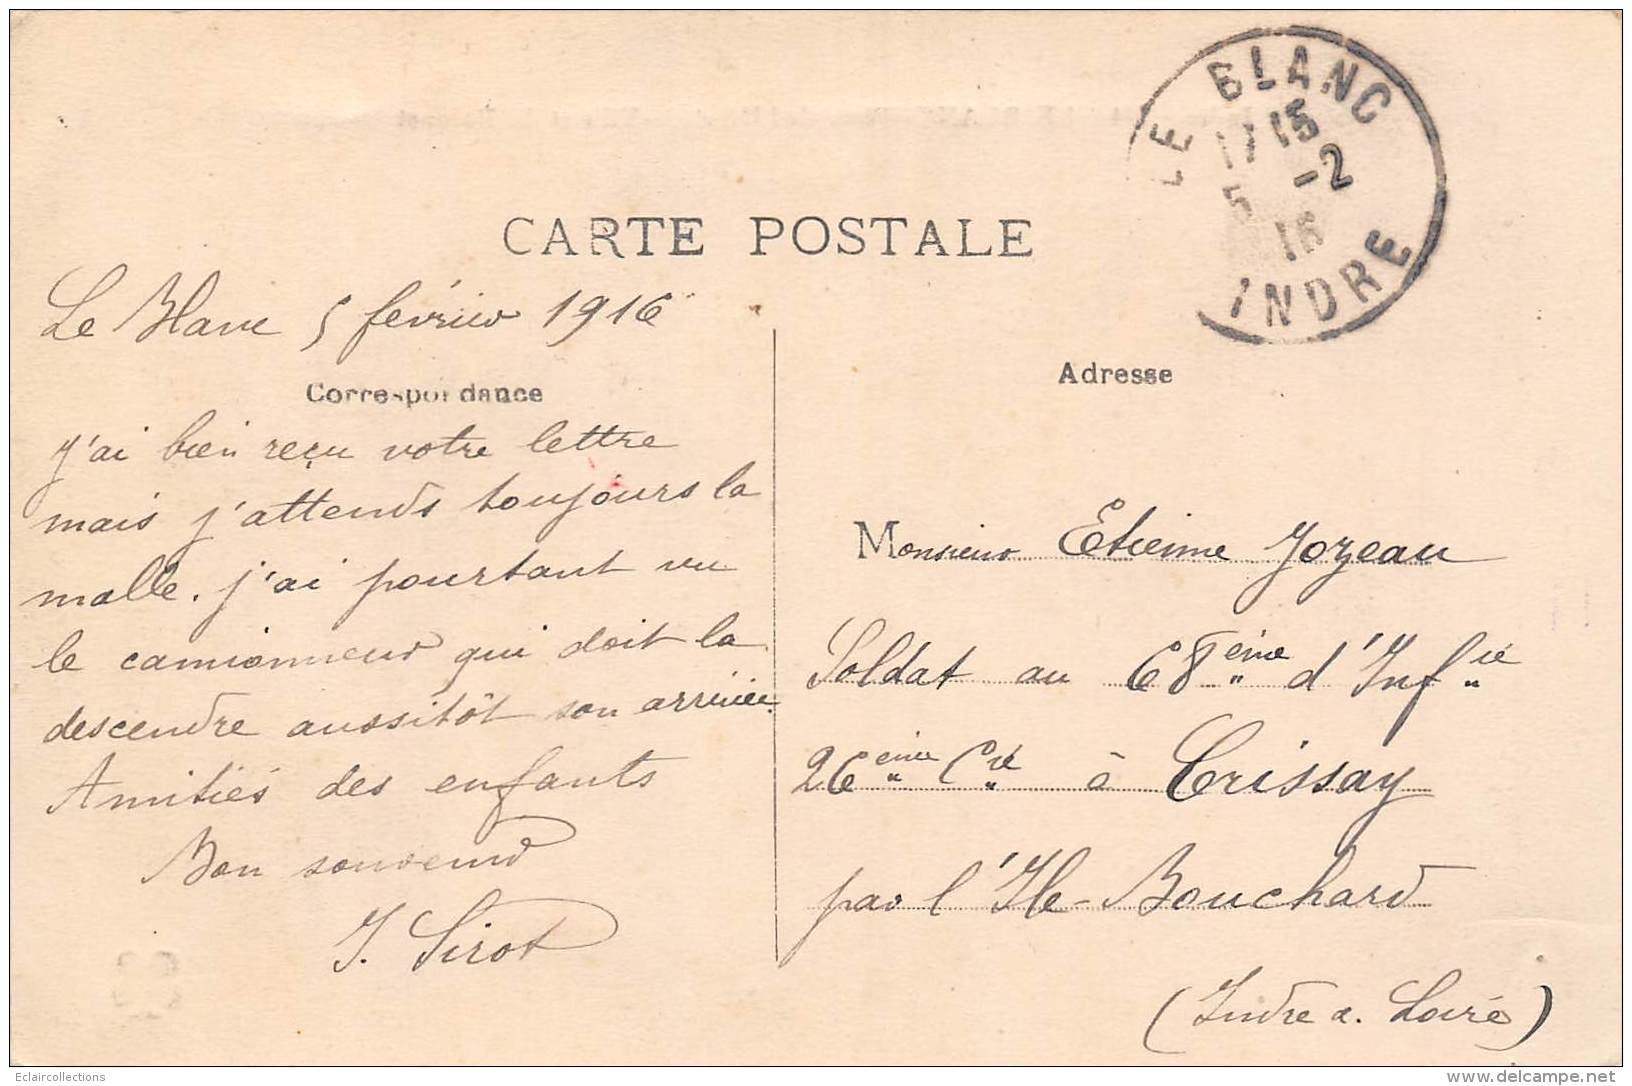 LE BLANC
17 15
5 -2
16
INDRE
CARTE POSTALE
Le Blanc 5 février 1916
Correspondance
J'ai bien reçu votre lettre
mais j'attends toujours la
malle. j'ai pourtant vu
le camionneur qui doit la
descendre aussitôt son arrivée.
Amitiés des enfants
Bon souvenir
J. Sirot
Adresse
Monsieur Etienne Jozeau
Soldat au 68ème d'Infie
26ème Cie à Crissay
par l'Ile-Bouchard
(Indre & Loire)
Eclaircollections
www.delcampe.net